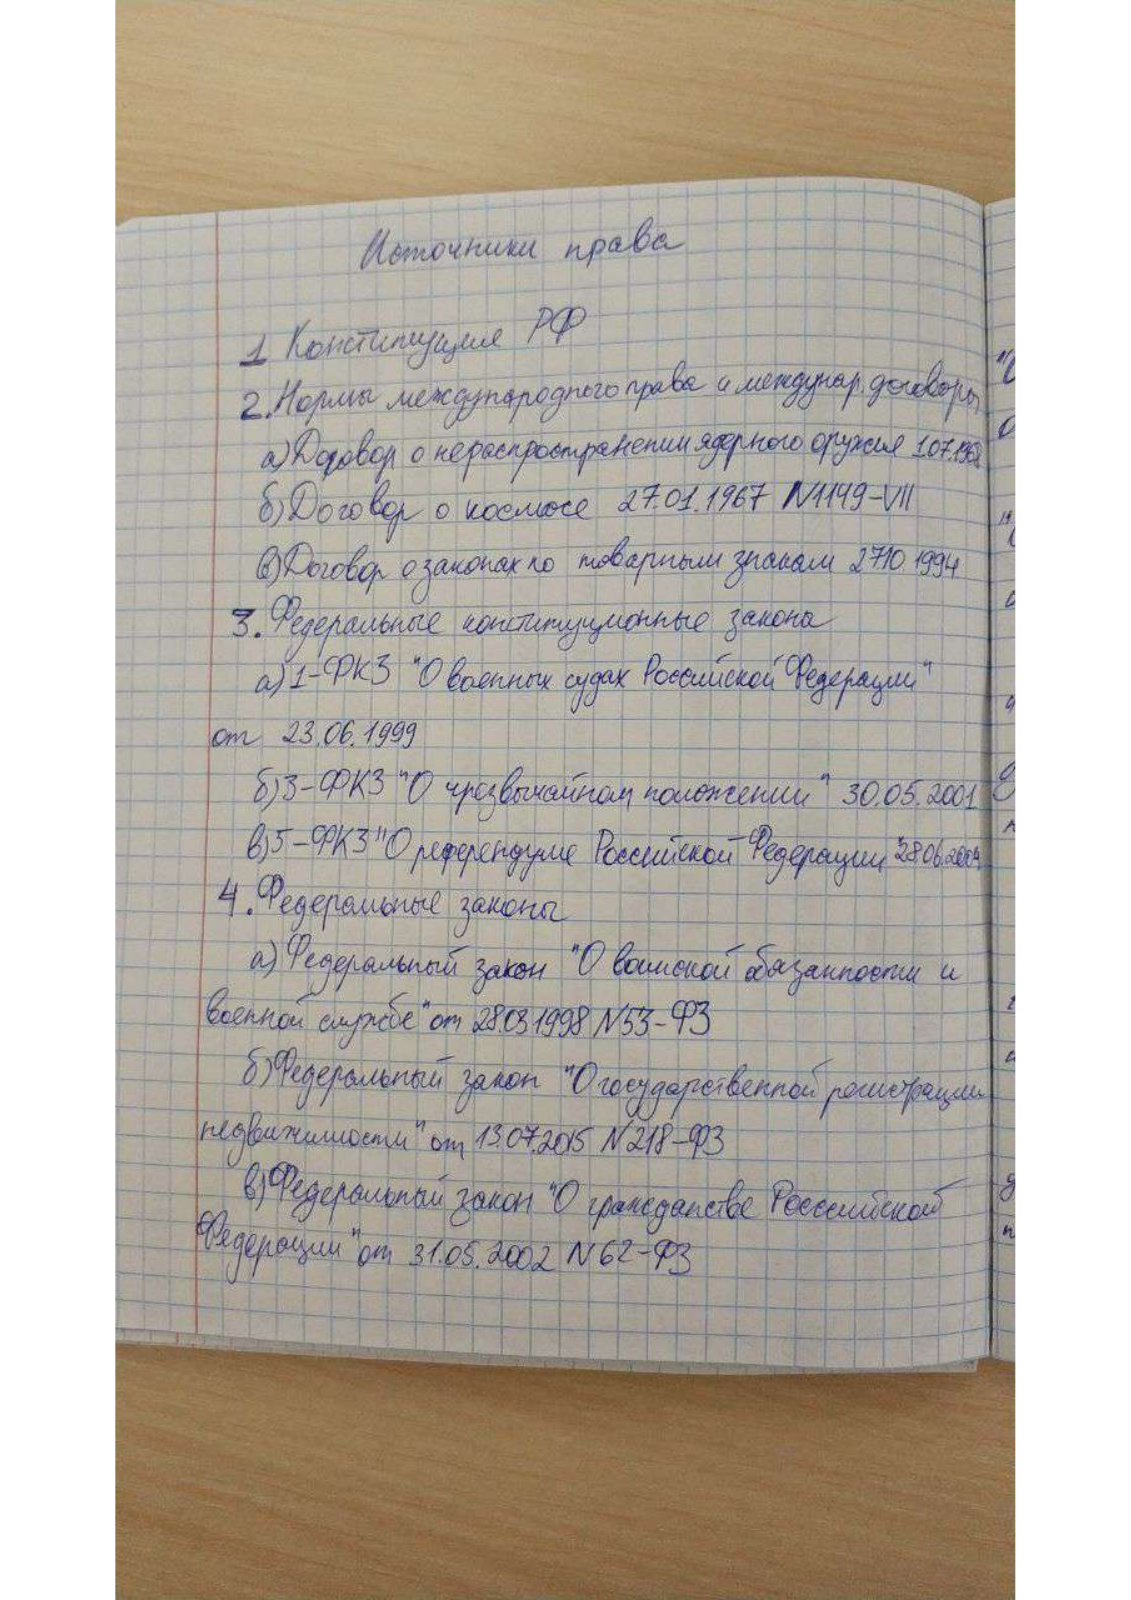 Источники права
1 Конституция РФ
2. Нормы международного права и междунар. договоры
а) Договор о нераспространении ядерного оружия 1.07.1968
б) Договор о космосе 27.01.1967 N1149-VII
в) Договор о законах по товарным знакам 27.10.1994
3. Федеральные конституционные закона
а) 1-ФКЗ "О военных судах Российской Федерации"
от 23.06.1999
б) 3-ФКЗ "О чрезвычайном положении" 30.05.2001
в) 5-ФКЗ "О референдуме Российской Федерации" 28.06.2004
4. Федеральные законы
а) Федеральный закон "О воинской обязанности и
военной службе" от 28.03.1998 N53-ФЗ
б) Федеральный закон "О государственной регистрации
недвижимости" от 13.07.2015 N218-ФЗ
в) Федеральный закон "О гражданстве Российской
Федерации" от 31.05.2002 N62-ФЗ